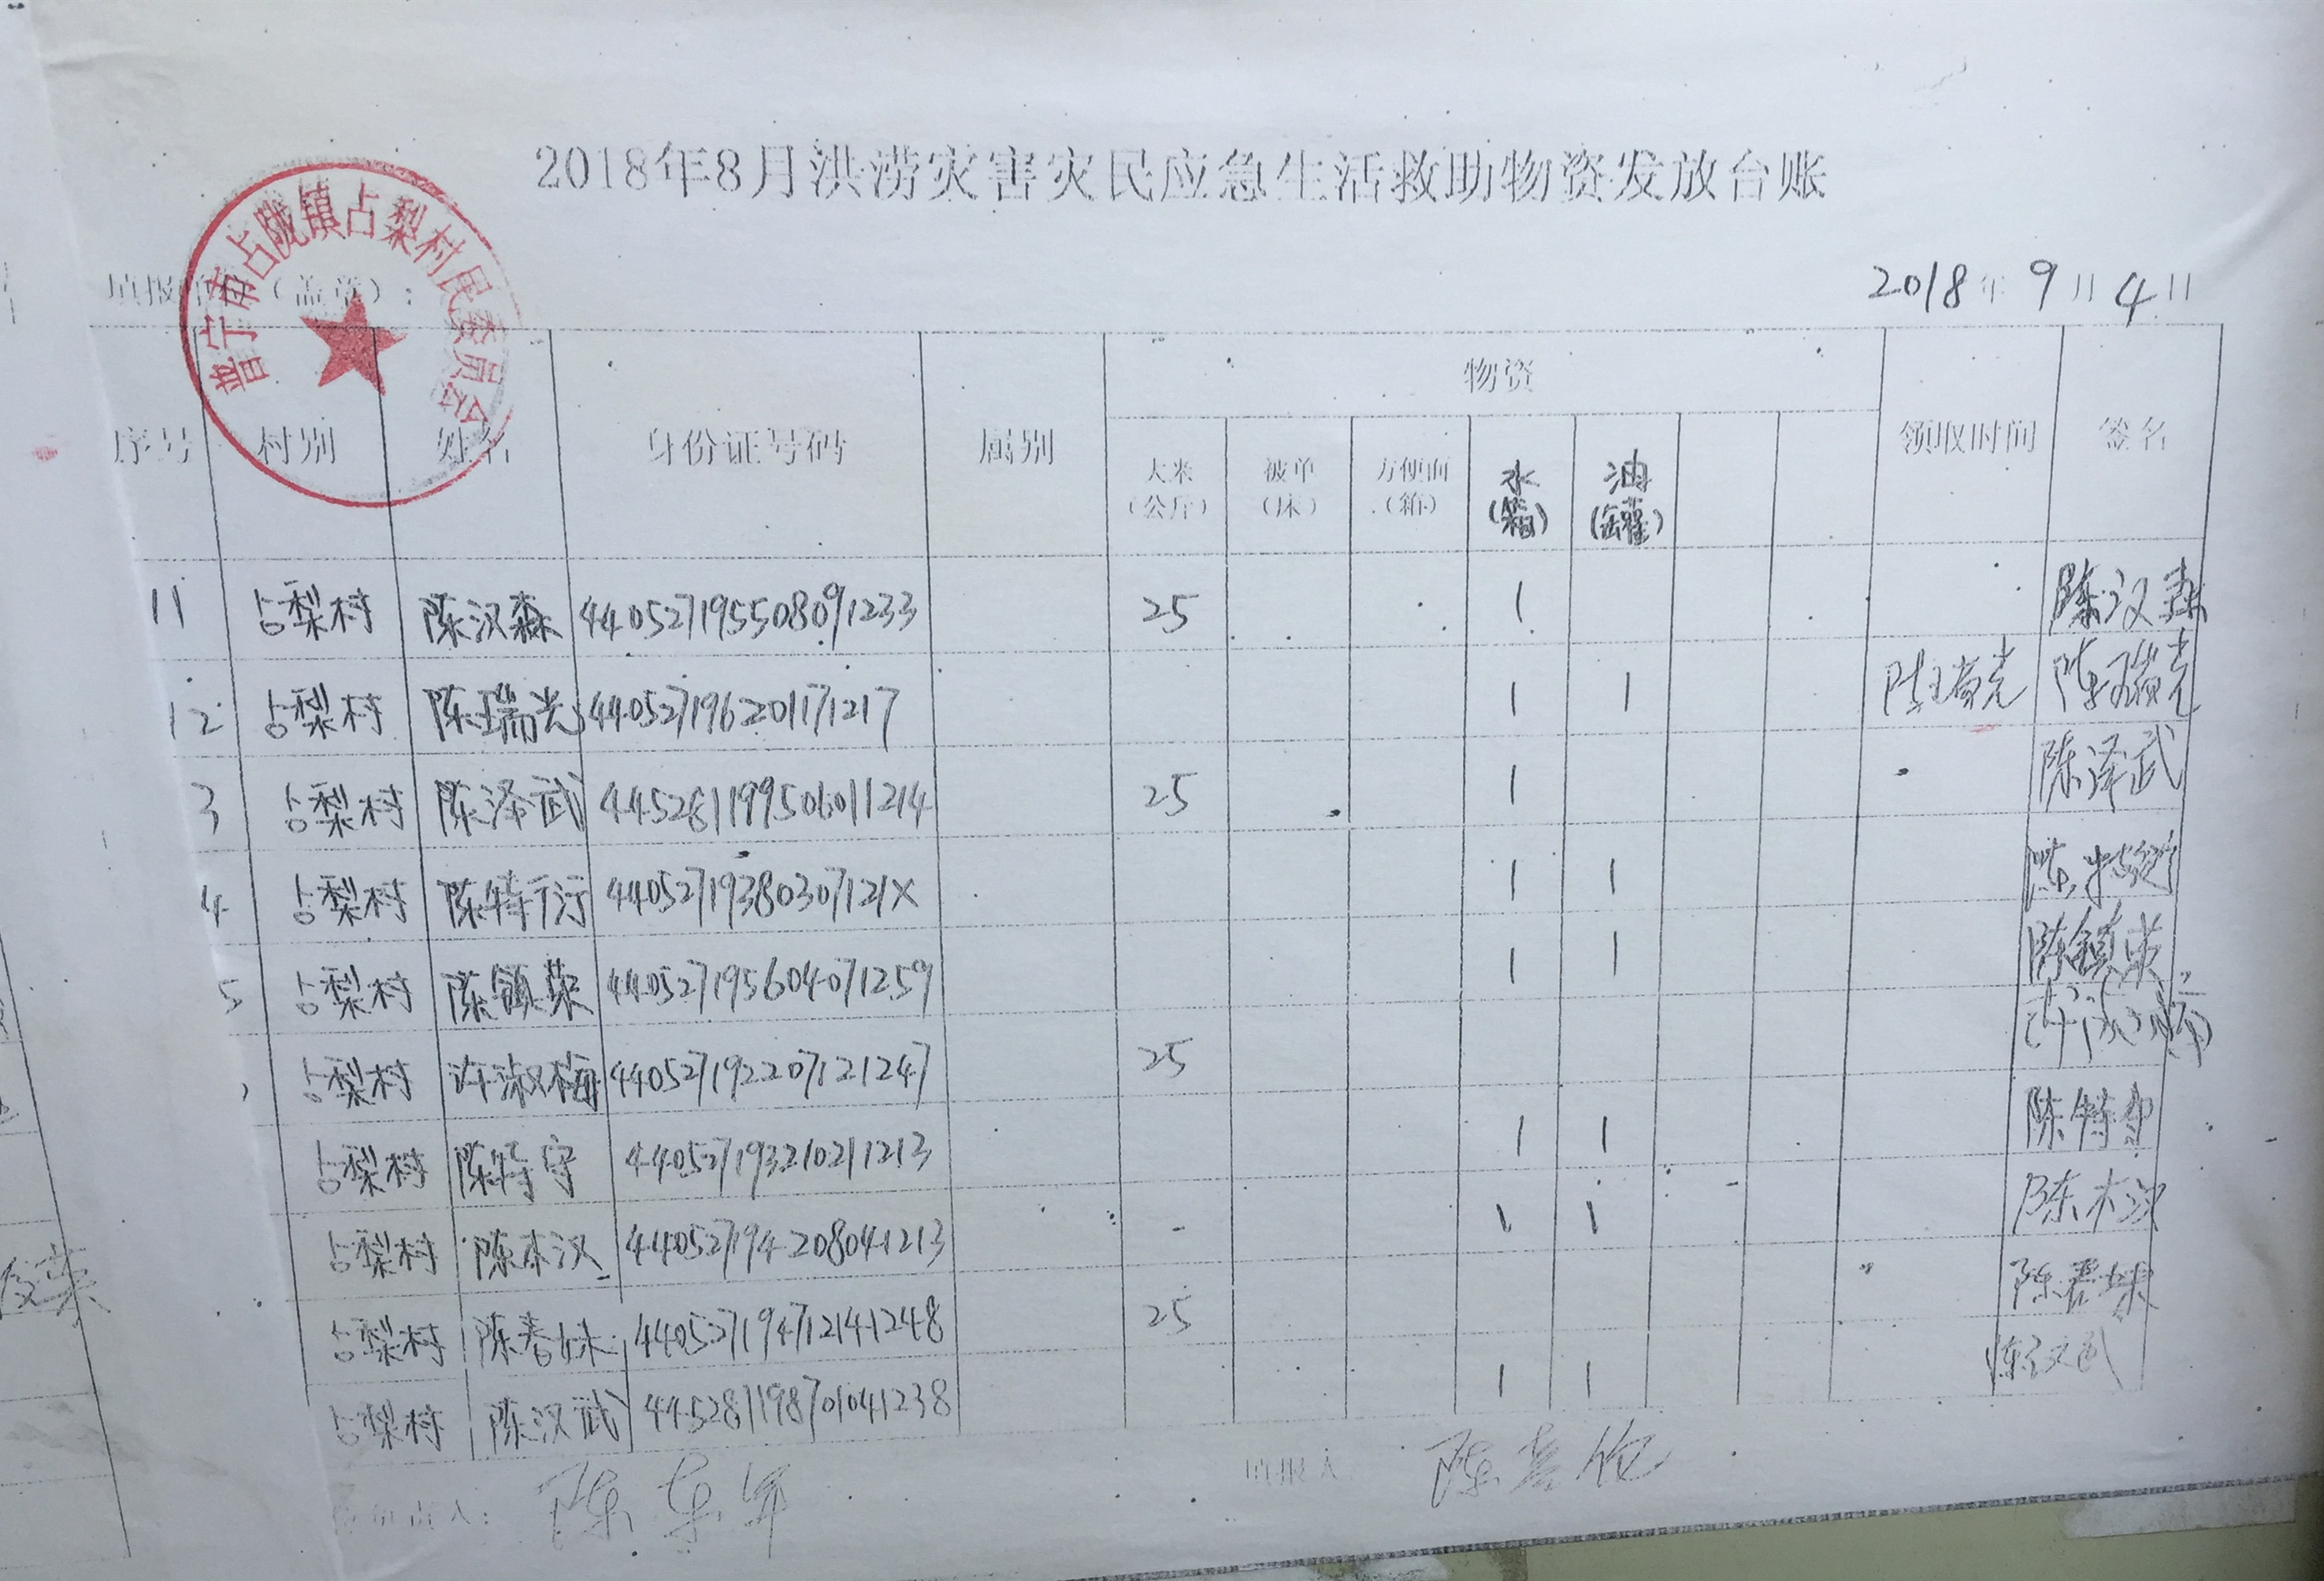 2018年8月洪涝灾害灾民应急生活救助物资发放台账
普宁市占陇镇占梨村民委员会
填报单位（盖章）：
2018年9月4日
序号 村别 姓名 身份证号码 属别 物资 领取时间 签名
大米（公斤） 被单（床） 方便面（箱） 水（箱） 油（罐）
11 占梨村 陈汉森 440527195508091233 25 1 陈汉森
12 占梨村 陈瑞光 440527196201171217 1 1 陈瑞光 陈瑞光
3 占梨村 陈泽武 445281199506011214 25 1 陈泽武
4 占梨村 陈特 44052719380307121X 1 1 陈特
5 占梨村 陈镇荣 440527195604071259 1 1 陈镇荣
占梨村 许淑梅 440527192207121247 25
占梨村 陈特守 440527193210211213 1 1 陈特守
占梨村 陈木汉 440527194208041213 1 1 陈木汉
占梨村 陈春妹 440527194712141248 25 陈春妹
占梨村 陈汉武 445281198701041238 1 1 陈汉武
负责人： 陈
填报人 陈